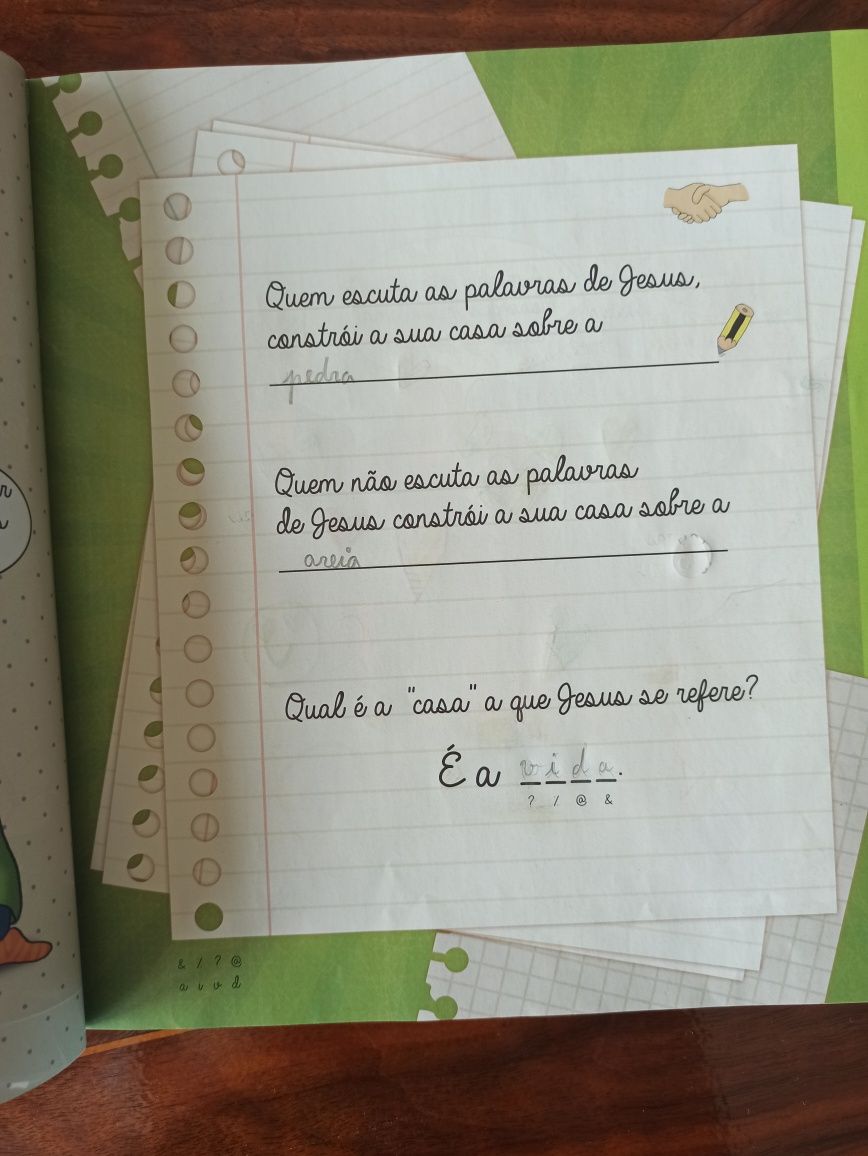 Quem escuta as palavras de Jesus,
constrói a sua casa sobre a
pedra
Quem não escuta as palavras
de Jesus constrói a sua casa sobre a
areia
Qual é a "casa" a que Jesus se refere?
É a vida.
? / @ &
& / ? @
a i v d